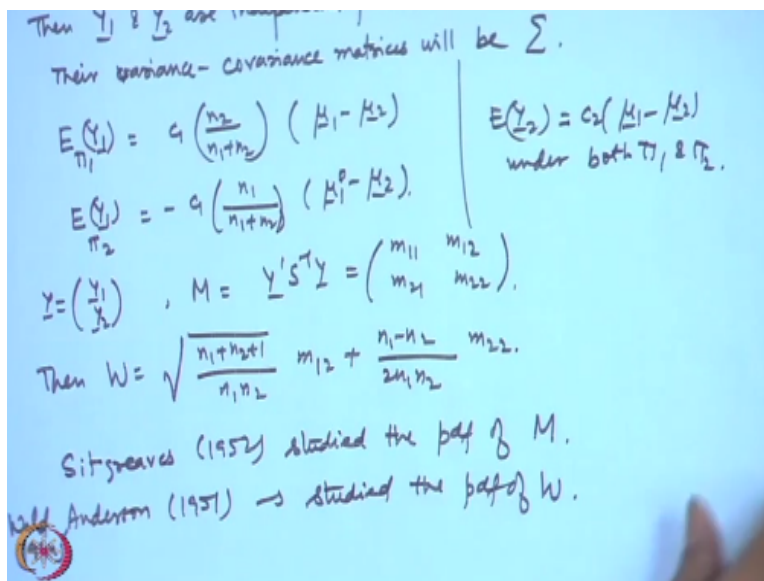 Then Y1 & Y2 are
Their variance-covariance matrices will be Σ.
E_π1(Y1) = c1 (n2/(n1+n2)) (μ1 - μ2)
E_π2(Y1) = - c1 (n1/(n1+n2)) (μ1 - μ2).
E(Y2) = c2 (μ1 - μ2)
under both π1 & π2.
Y = (Y1 Y2), M = Y'S⁻¹Y = (m11 m12 m21 m22).
Then W = √((n1+n2+1)/(n1n2)) m12 + (n1-n2)/(2n1n2) m22.
Sitgreaves (1952) studied the pdf of M.
Wald Anderson (1951) → studied the pdf of W.